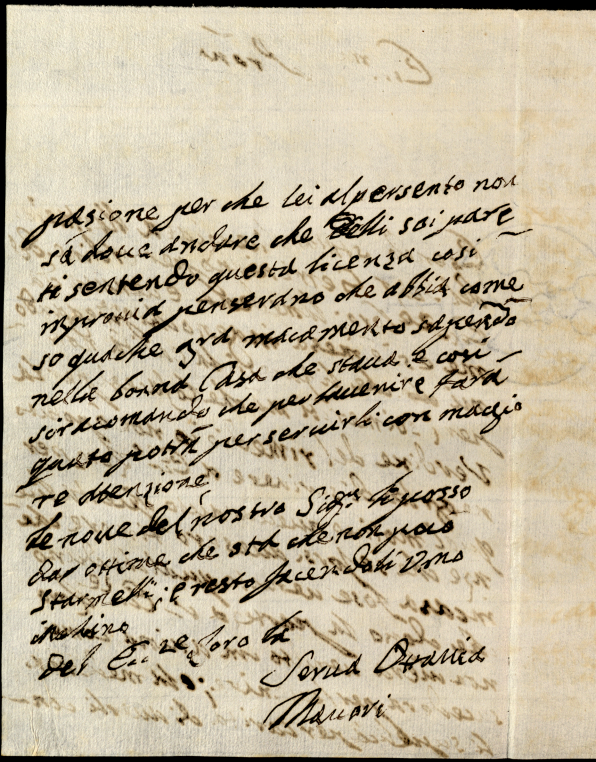 pasione per che lei al persento non
sà doue andare che li soi pare
ti sentendo questa licenza cosi
inprouisa penserano che abbia come
so quache gra macamento sapendo
nella bonna Casa che staua e cosi
si racomando che per lauenire farà
quato potrà per seruirli con magio
re atenzione;
le noue del nostro Sig.re li posso
dar ottime che stà che non può
star melli; e resto facendoli vmo
inchino
del E.ze loro la
Serua Ottauia